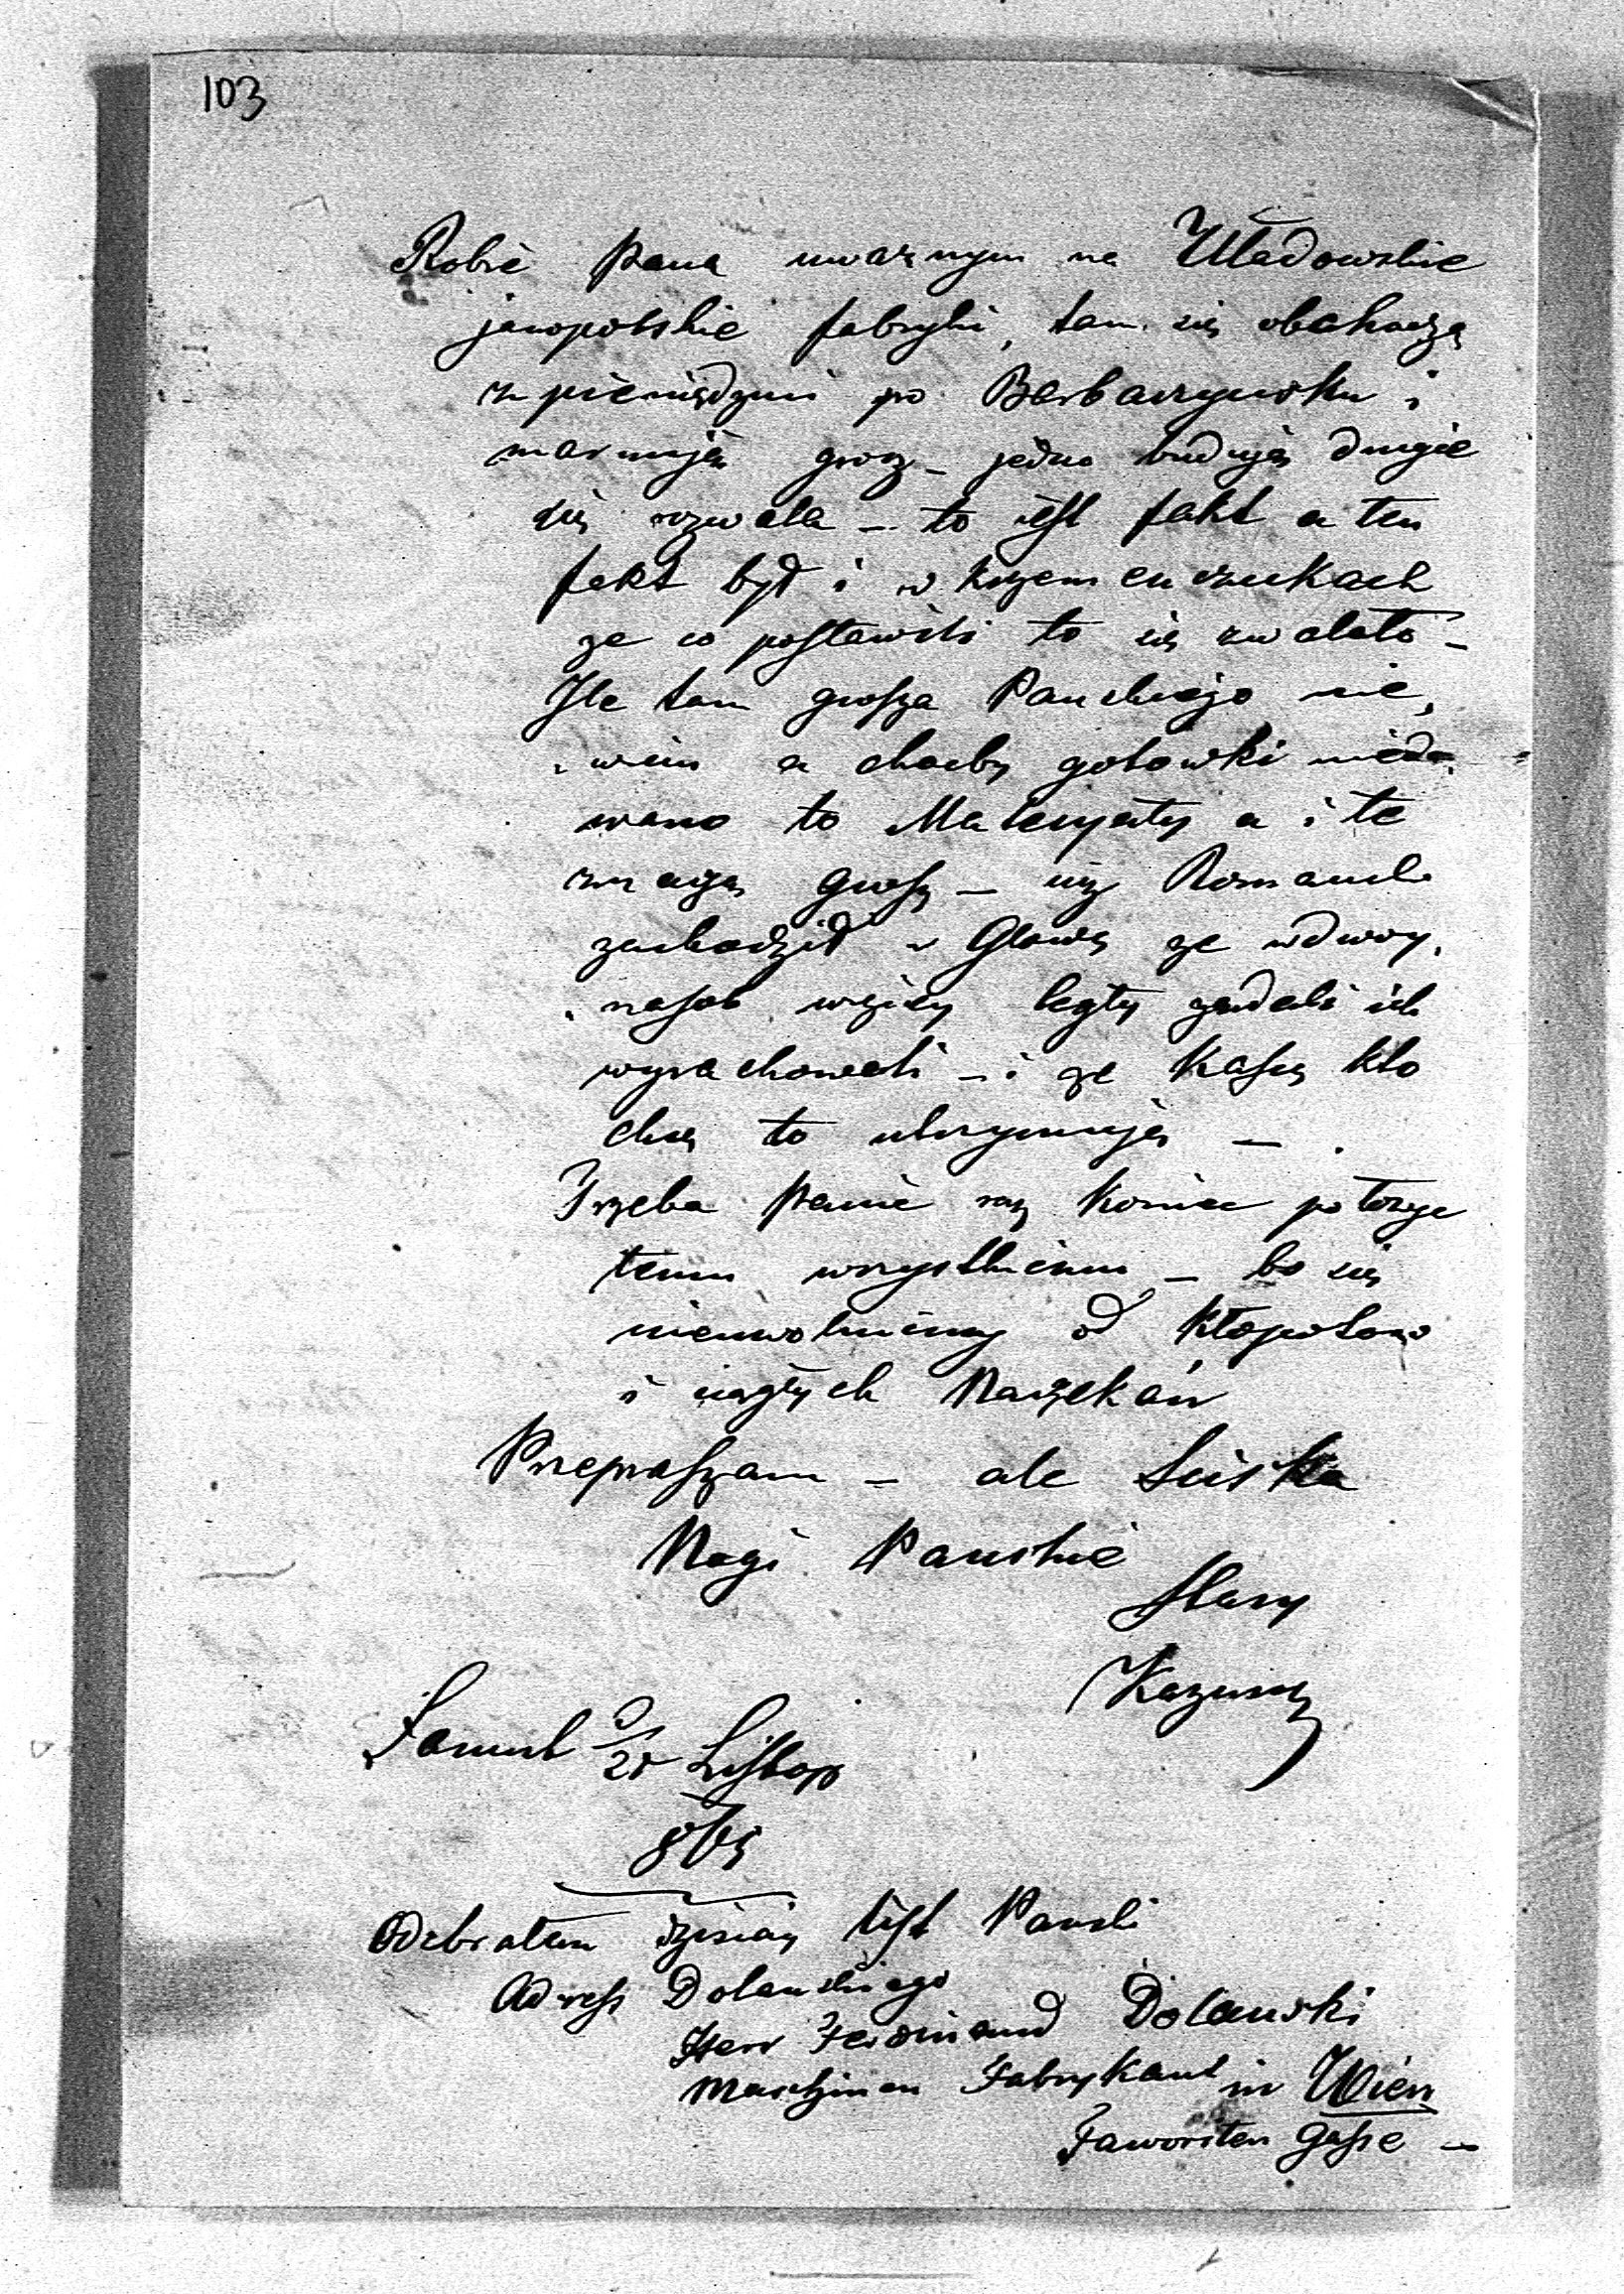 103
Robię Pana uważnym na Uładowskie
janopolskie fabryki, tam się obchodzą
z pieniędzmi po Barbarzyńsku i
marnują grosz – jedno budują drugie
się rozwala – to jest fakt a ten
fakt był i w Krzemienczukach
ze co postawili to się zwalało –
Ile tam grosza Panskiego nie,
, wiem a choćby gotowki nieda,
wano to Materyały a i te
znaczą grosz – 
zachodził w Głowę ze wdwoy,
, nasob wzięły
wyrachowali – i ze Kassę kto
chce to utrzymuje –
Trzeba Panie raz Koniec połozyc
temu wszystkiemu – bo się
nieuwolniemy od Kłopotow
i ciągłych Narzekań
Przepraszam – ale Sciska
Nogi Panskie
Stary
Kazimirz
Listop
Odebrałem dzisiay list Panski
Adress Dolanskiego
Herr Ferdinand Dolanski
Maschinen Fabrykant in Wien
Faworiten Gasse –